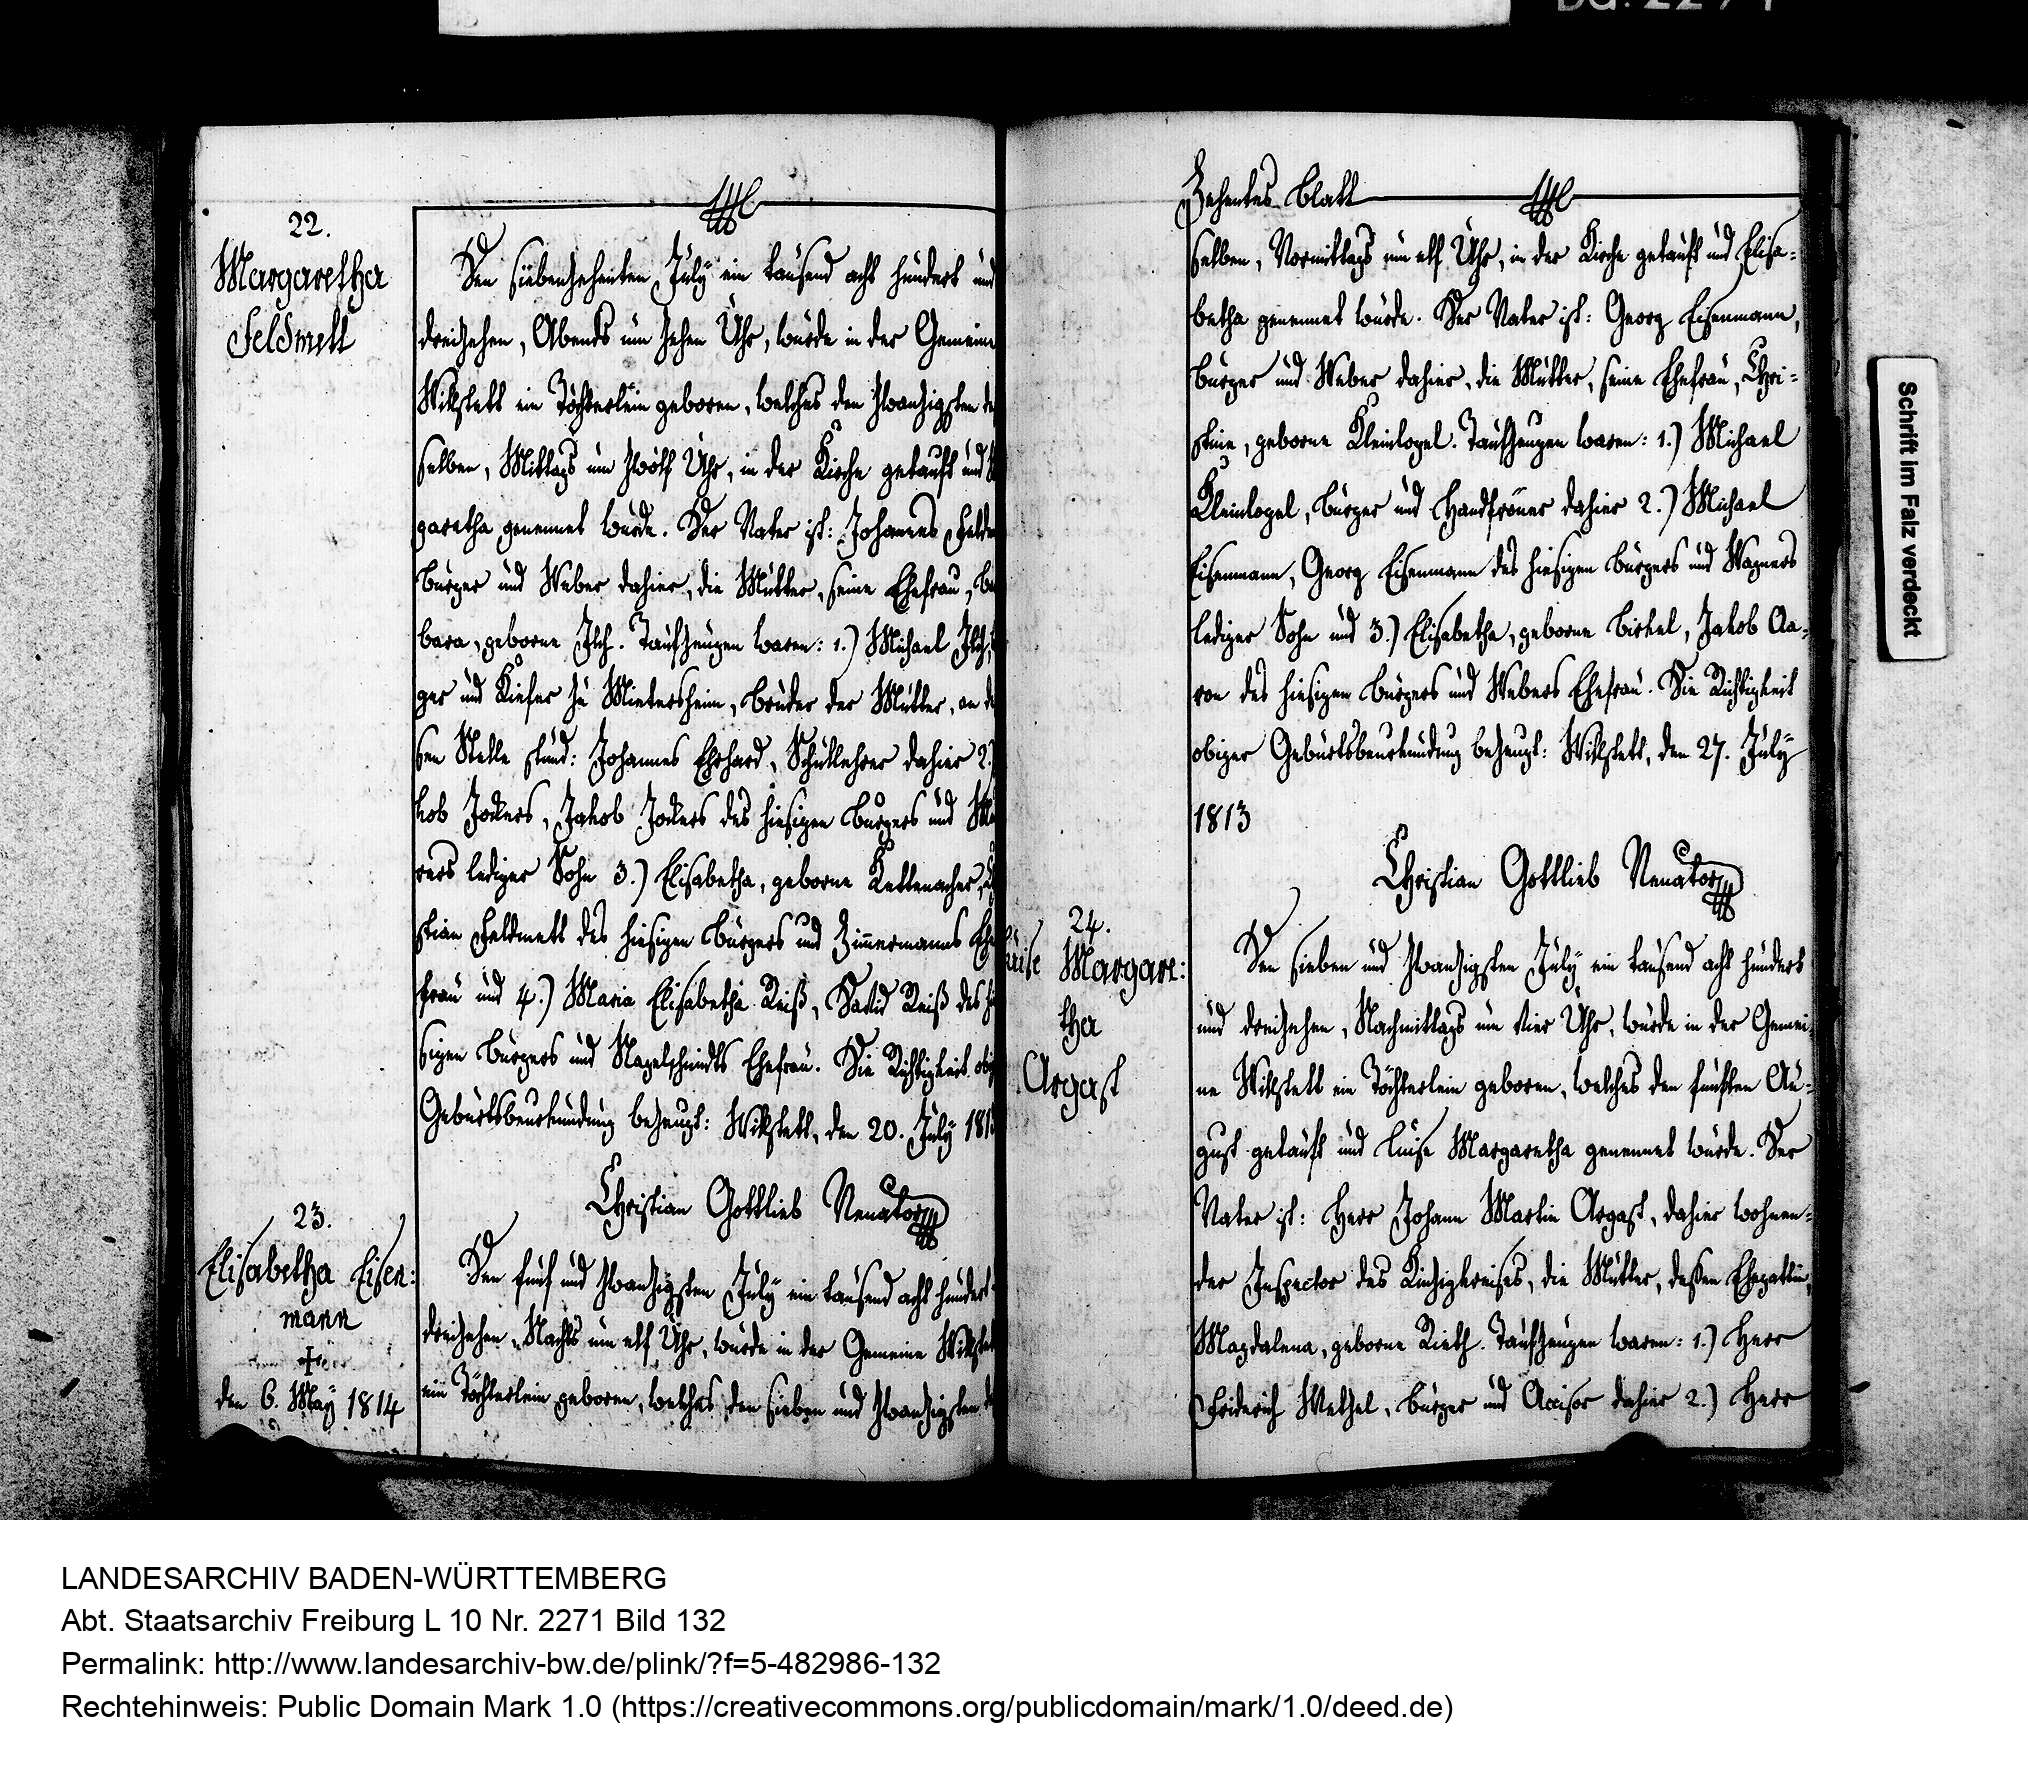 22.
Margaretha
Feldmett
Den siebenzehenten July ein tausend acht hundert und
dreizehen, Abends um zehen Uhr, wurde in der Gemeine
Willstett ein Töchterlein geboren, welches den zwanzigsten des
selben, Mittags um zwölf Uhr, in der Kirche getauft und
garetha genennet wurde. Der Vater ist: Johannes
Bürger und Weber dahier, die Mutter, seine Ehefrau, Ba
bara, geborne Ilch. Taufzeugen waren: 1.) Michael Ilch,
ger und Kiefer zu Mietersheim, Bruder der Mutter, an de
sen Stelle stund: Johannes Ehrhard, Schullehrer dahier 2.)
kob Jockers, Jakob Jockers des hiesigen Bürgers und Ma
rers lediger Sohn 3.) Elisabetha, geborne Kettenacher,
stian Feldmett des hiesigen Bürgers und Zimmermanns Ehe
frau und 4.) Maria Elisabetha Reiß, David Reiß des hie
sigen Bürgers und Nagelschmidts Ehefrau. Die Richtigkeit obi
Geburtsbeurkundung bezeugt: Willstett, den 20. July 181
Christian Gottlieb Venator
23.
Elisabetha Eisen:
mann
†
den 6. May 1814
Den fünf und zwanzigsten July ein tausend acht hundert
dreizehen, Nachts um elf Uhr, wurde in der Gemeine Willstet
ein Töchterlein geboren, welches den sieben und zwanzigsten
Zehentes Blatt
selben, Vormittags um elf Uhr, in der Kirche getauft und Elisa-
betha genennet wurde. Der Vater ist: Georg Eisenmann,
Bürger und Weber dahier, die Mutter, seine Ehefrau, Chri-
stine, geborne Kleinlogel. Taufzeugen waren: 1.) Michael
Kleinlogel, Bürger und Handfröner dahier 2.) Michael
Eisenmann, Georg Eisenmann des hiesigen Bürgers und Wagners
lediger Sohn und 3.) Elisabetha, geborne Birkel, Jakob Aa-
ron des hiesigen Bürgers und Webers Ehefrau. Die Richtigkeit
obiger Geburtsbeurkundung bezeugt: Willstett, den 27. July
1813
Christian Gottlieb Venator
24.
Luise Margare:
tha
Argast
Den sieben und zwanzigsten July ein tausend acht hundert
und dreizehen, Nachmittags um vier Uhr, wurde in der Gemei-
ne Willstett ein Töchterlein geboren, welches den fünften Au-
gust getauft und Luise Margaretha genennet wurde. Der
Vater ist: Herr Johann Martin Argast, dahier wohnen-
der Inspector des Kinzigkreises, die Mutter, dessen Ehegattin,
Magdalena, geborne Rieth. Taufzeugen waren: 1.) Herr
Friderich Wetzel, Bürger und Accisor dahier 2.) Herr
Schrift im Falz verdeckt
LANDESARCHIV BADEN-WÜRTTEMBERG
Abt. Staatsarchiv Freiburg L 10 Nr. 2271 Bild 132
Permalink: http://www.landesarchiv-bw.de/plink/?f=5-482986-132
Rechtehinweis: Public Domain Mark 1.0 (https://creativecommons.org/publicdomain/mark/1.0/deed.de)